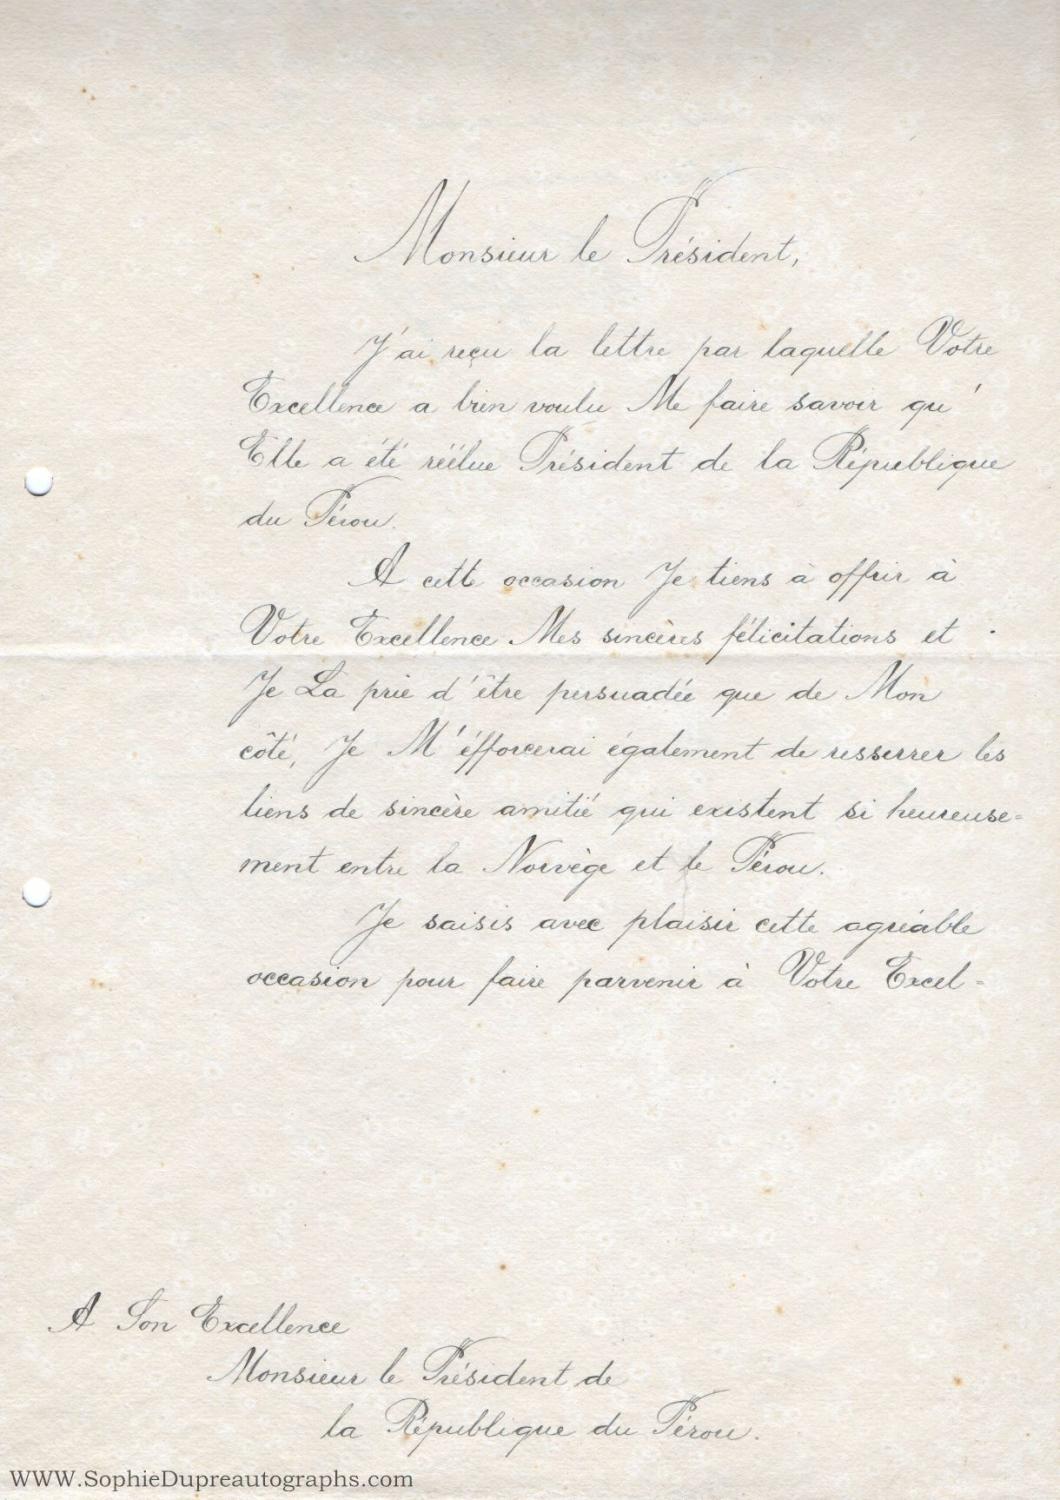 Monsieur le Président,
J'ai reçu la lettre par laquelle Votre
Excellence a bien voulu Me faire savoir qu'
Elle a été réélue Président de la République
du Pérou.
A cette occasion Je tiens à offrir à
Votre Excellence Mes sincères félicitations et
Je La prie d'être persuadée que de Mon
côté, Je M'éfforcerai également de resserrer les
liens de sincère amitié qui existent si heureuse=
ment entre la Norvège et le Pérou.
Je saisis avec plaisir cette agréable
occasion pour faire parvenir à Votre Excel=
A Son Excellence
Monsieur le Président de
la République du Pérou.
WWW.SophieDupreautographs.com